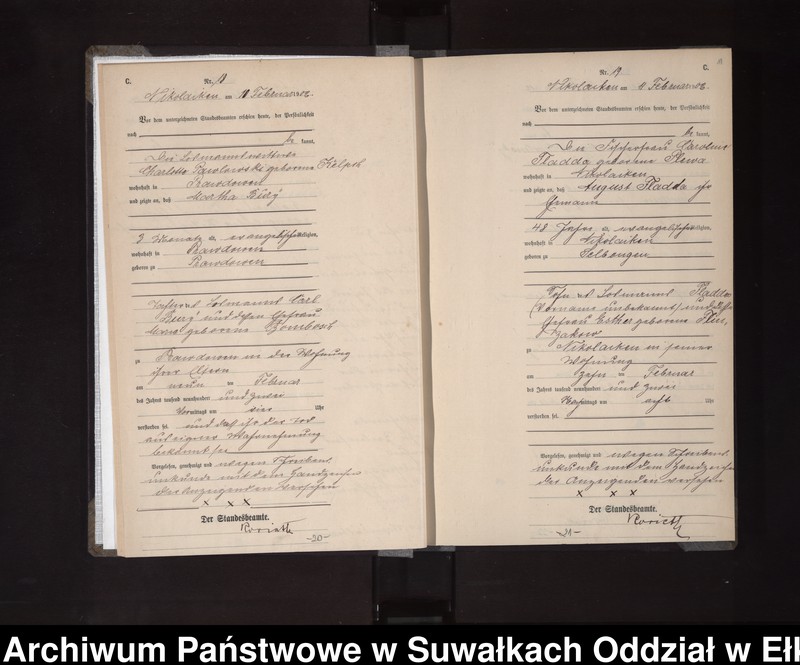 C.
Nr.
Nikolaiken am 10 Februar 1902.
Vor dem unterzeichneten Standesbeamten erschien heute, der Persönlichkeit
nach
kannt,
Charlotte Pawlowski geborene
wohnhaft in Prawdowen
und zeigte an, daß Martha
3 Monate a. evangelischer Religion,
wohnhaft in Prawdowen
geboren zu Prawdowen
Tochter des Losmanns Carl
und dessen Ehefrau
geborene
zu Prawdowen in der Wohnung
ihrer Eltern
am neun ten Februar
des Jahres tausend neunhundert und zwei
Vormittags um vier Uhr
verstorben sei und daß ihr der Tod
aus eigener Wahrnehmung
bekannt sei
Vorgelesen, genehmigt und wegen Schreibens
unkunde mit dem Handzeichen
der Anzeigenden versehen
x x x
Der Standesbeamte.
-20-
Nr. 19
C.
Nikolaiken am 11 Februar 1902.
Vor dem unterzeichneten Standesbeamten erschien heute, der Persönlichkeit
nach
kannt,
Die Fischerfrau Caroline
geborene
wohnhaft in Nikolaiken
und zeigte an, daß August
Ehemann
48 Jahre a. evangelischer Religion,
wohnhaft in Nikolaiken
geboren zu Selbongen
Sohn des Losmanns
(Vorname unbekannt) und dessen
Ehefrau Esther geborene
zu Nikolaiken in seiner
Wohnung
am zehn ten Februar
des Jahres tausend neunhundert und zwei
mittags um acht Uhr
verstorben sei.
Vorgelesen, genehmigt und wegen Schreibens
unkunde mit dem Handzeichen
der Anzeigenden versehen
x x x
Der Standesbeamte.
-21-
Archiwum Państwowe w Suwałkach Oddział w Ełk